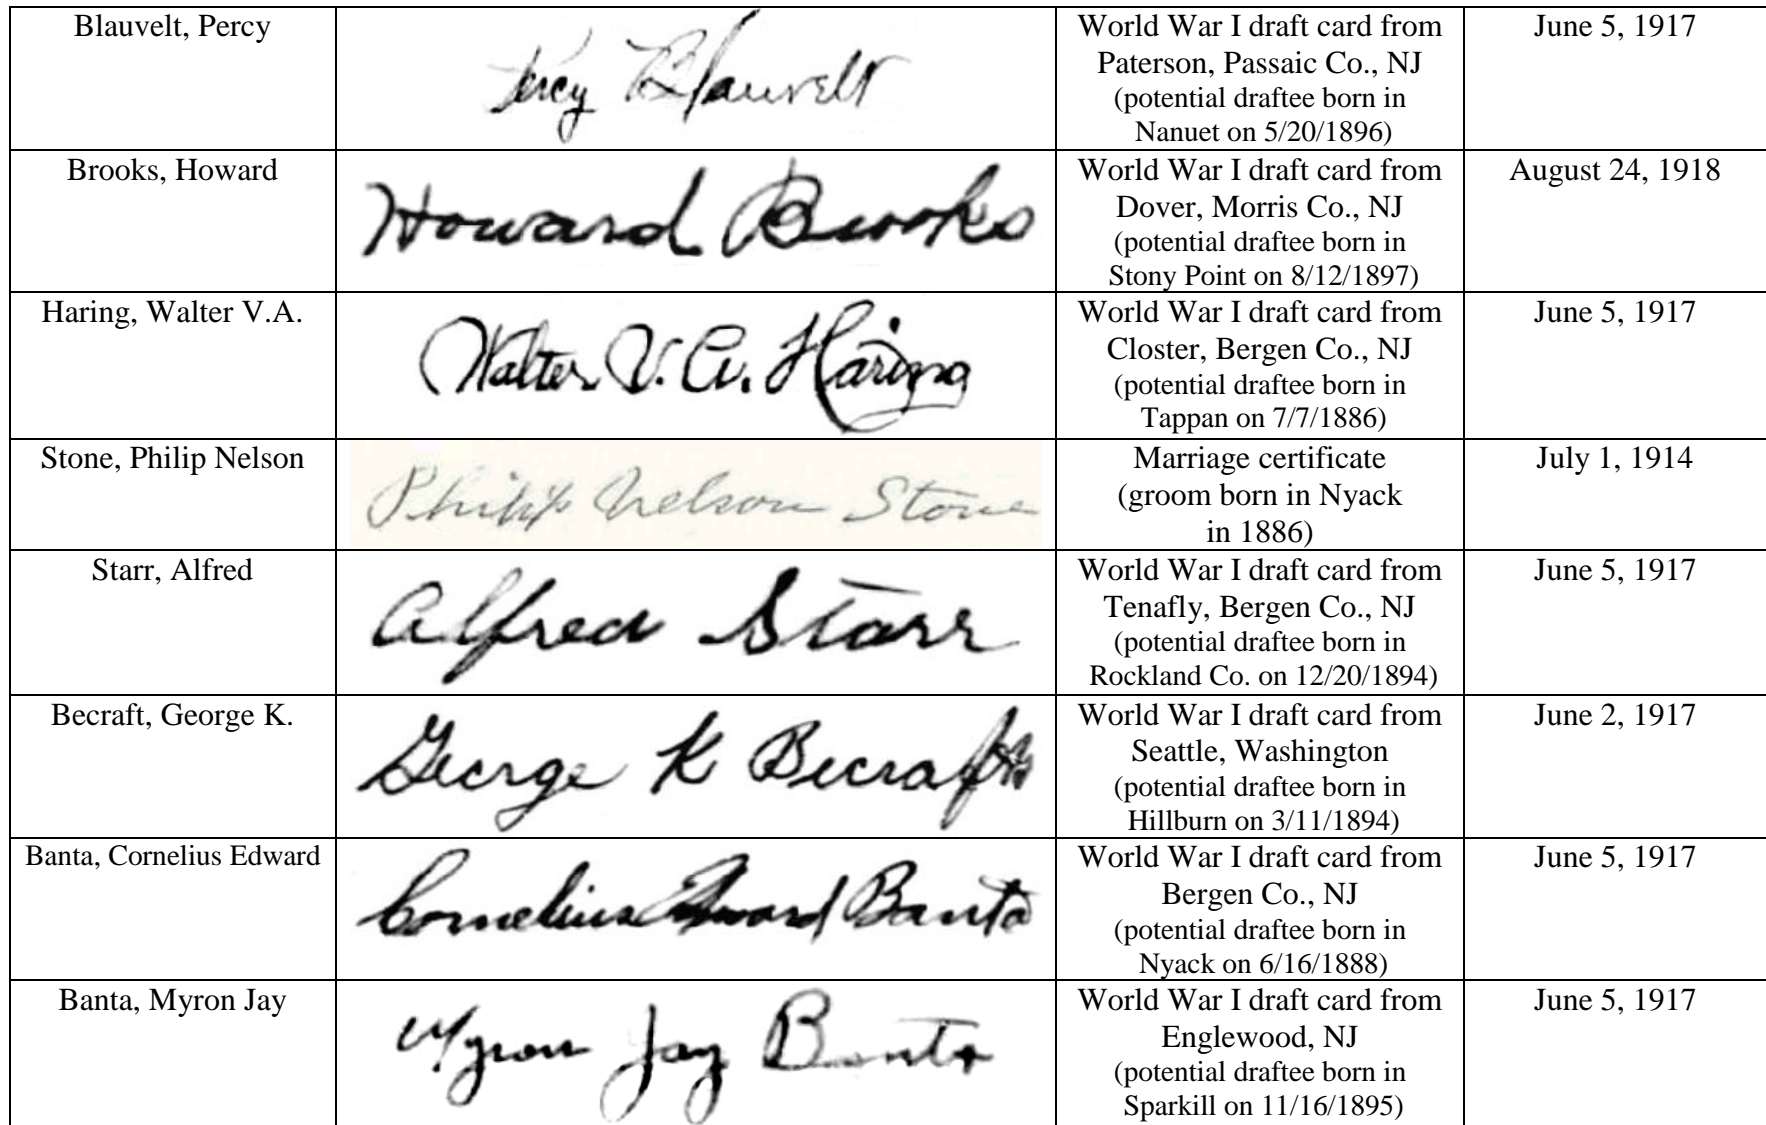 Blauvelt, Percy
Percy Blauvelt
World War I draft card from
Paterson, Passaic Co., NJ
(potential draftee born in
Nanuet on 5/20/1896)
June 5, 1917
Brooks, Howard
Howard Brooks
World War I draft card from
Dover, Morris Co., NJ
(potential draftee born in
Stony Point on 8/12/1897)
August 24, 1918
Haring, Walter V.A.
Walter V. A. Haring
World War I draft card from
Closter, Bergen Co., NJ
(potential draftee born in
Tappan on 7/7/1886)
June 5, 1917
Stone, Philip Nelson
Philip Nelson Stone
Marriage certificate
(groom born in Nyack
in 1886)
July 1, 1914
Starr, Alfred
Alfred Starr
World War I draft card from
Tenafly, Bergen Co., NJ
(potential draftee born in
Rockland Co. on 12/20/1894)
June 5, 1917
Becraft, George K.
George K Becraft
World War I draft card from
Seattle, Washington
(potential draftee born in
Hillburn on 3/11/1894)
June 2, 1917
Banta, Cornelius Edward
Cornelius Edward Banta
World War I draft card from
Bergen Co., NJ
(potential draftee born in
Nyack on 6/16/1888)
June 5, 1917
Banta, Myron Jay
Myron Jay Banta
World War I draft card from
Englewood, NJ
(potential draftee born in
Sparkill on 11/16/1895)
June 5, 1917